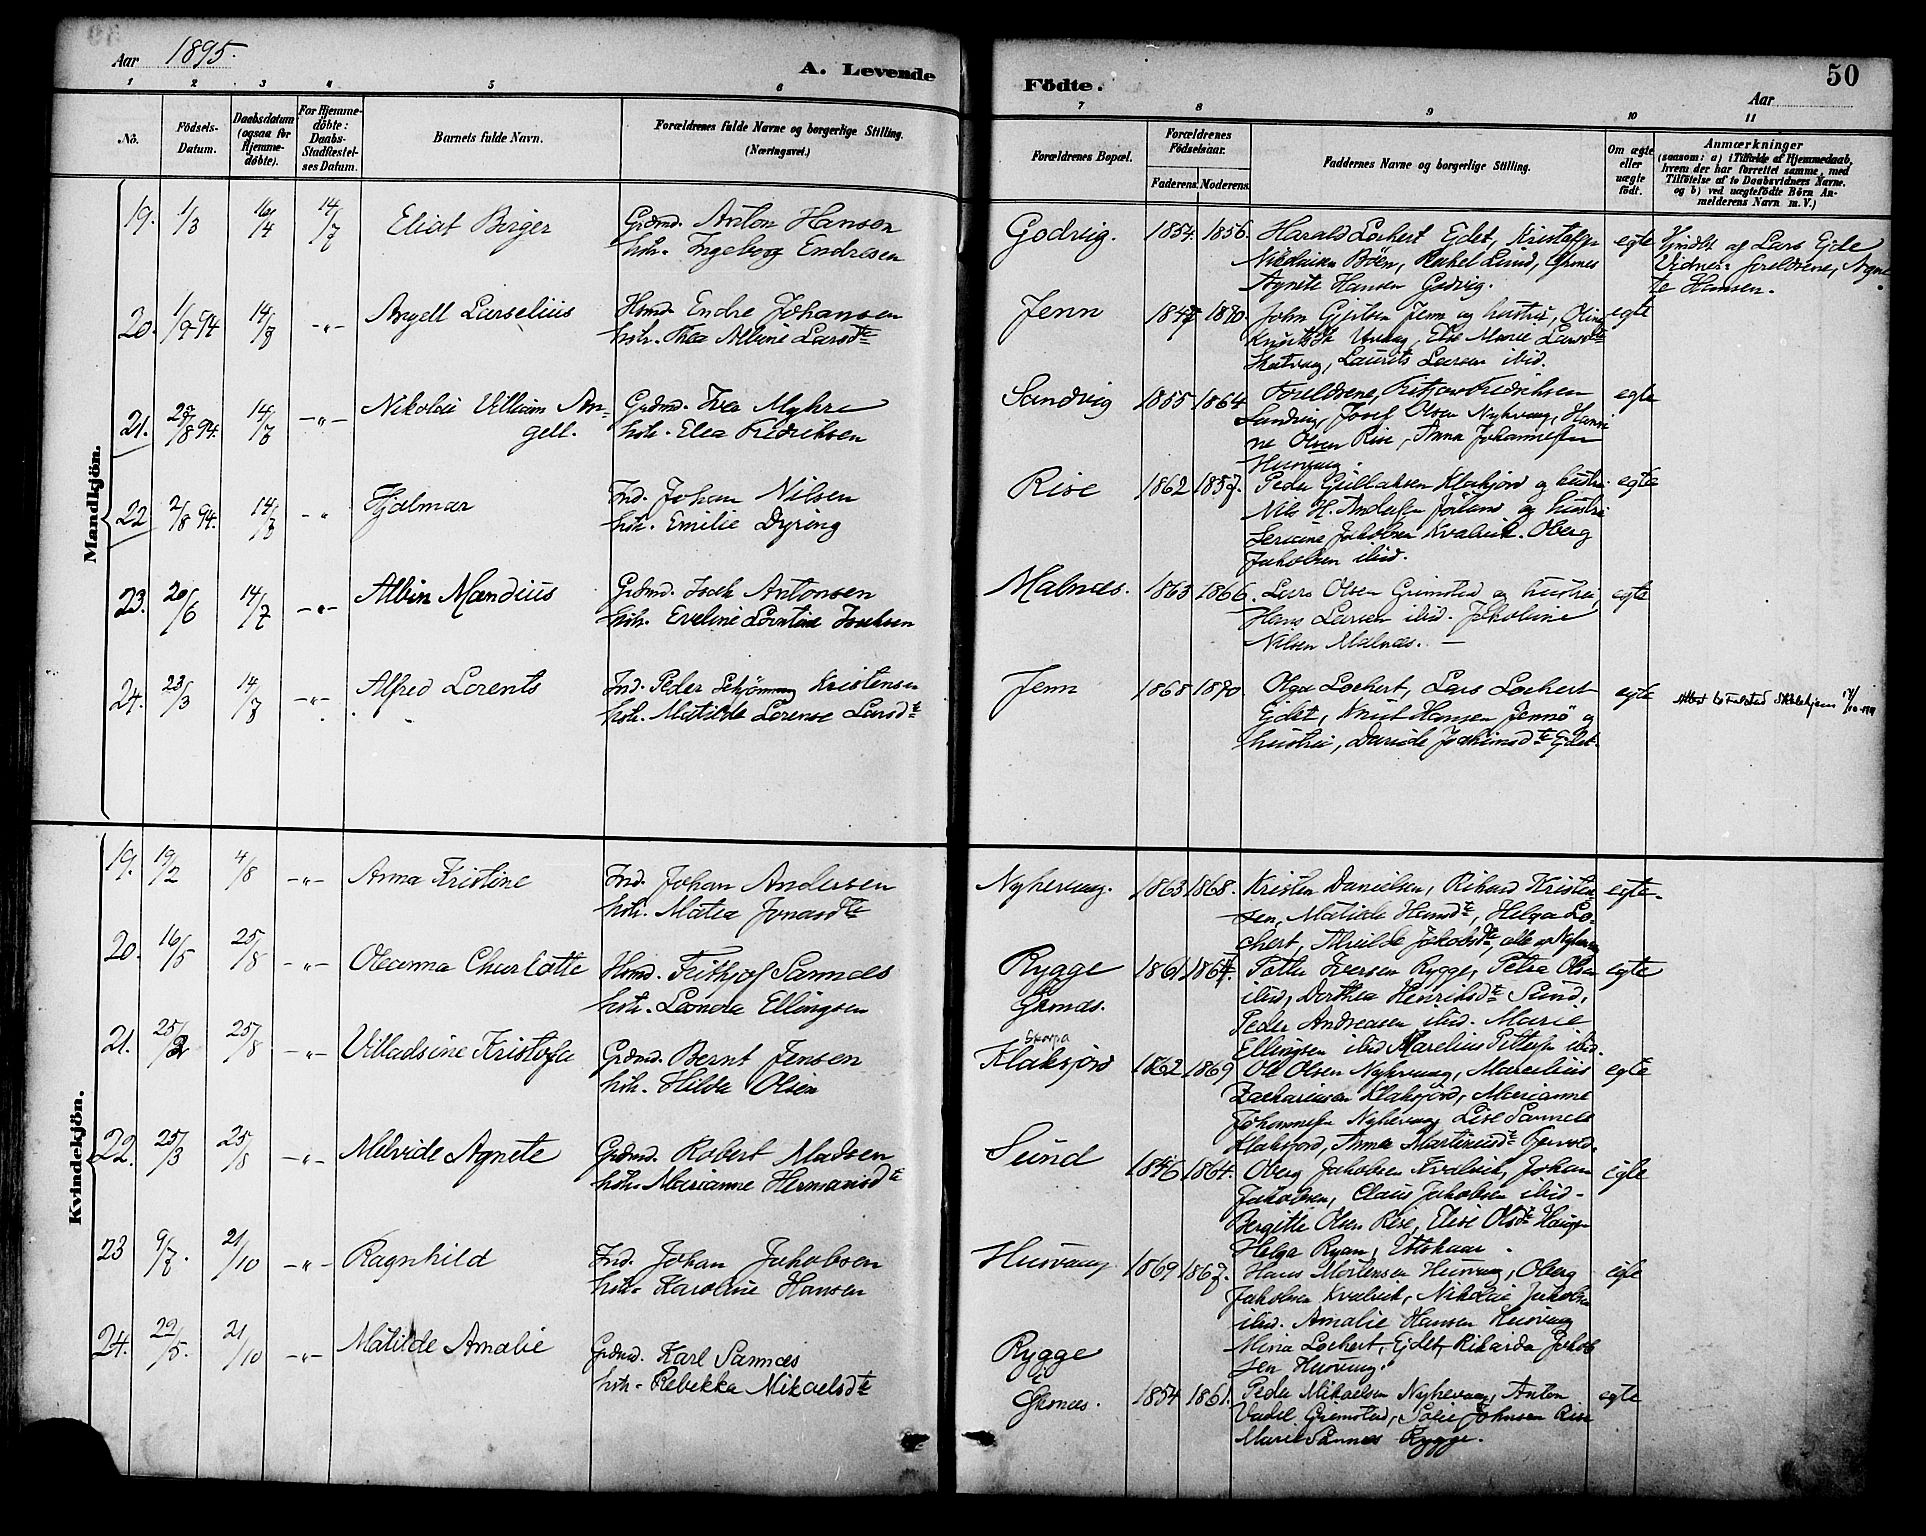 Aar 1895.
A. Levende
Födte.
50
Aar
1 2 3 4 5 6 7 8 9 10 11
No.
Födsels-
Datum.
Daabsdatum
(ogsaa for
Hjemme-
döbte).
For Hjemme-
döbte:
Daabs-
Stadfæstel-
ses Datum.
Barnets fulde Navn.
Forældrenes fulde Navne og borgerlige Stilling.
(Næringsvei.)
Forældrenes Bopæl.
Forældrenes
Födselsaar.
Faderens. Moderens.
Faddernes Navne og borgerlige Stilling.
Om ægte
eller
uægte
födt.
Anmærkninger
(saasom: a) i Tilfælde af Hjemmedaab,
hvem der har forrettet samme, med
Tilföielse af to Daabsvidners Navne.
og b) ved uægtefödte Börn An-
melderens Navn m. V.)
Mandkjön.
19. 1/3 16/4 14/7 Eliot Birger
Grdmd. Anton Hansen
hstr. Ingeborg Endresen
Godvig. 1854. 1856.
Harald Lochert Ejdet, Kristoffer
Nikolaisen Böen, Rakel Lund,
Agnete Hansen Godvig.
egte
Hjmdbt af Lars Ejde
Vidner: foreldrene, Agne
te Hansen.
20. 1/9 94 14/7 -"- Angell Larselius
Hsmd. Endre Johansen
hstr. Thea Albine Larsdtr
Jenn 1847 1870.
John Gjertsen Jenn og hustru, Oline
Knutsdtr, Else Marie Larsdtr
Skatvag, Laurits Larsen ibid.
egte
21. 28/8 94. 14/7 -"- Nikolai Villiam An-
gell.
Grdmd. Iver Myhre
hstr. Elea Fredriksen
Sandvig 1855 1864
Foreldrene, Fritjow Fredriksen
Sandvig, Josef Olsen Nyhevaag, Hansi
ne Olsen Rise, Anna Johannessen
Husvaag.
egte
22. 2/8 94. 14/7 -"- Hjalmar
Ind. Johan Nilsen
hstr. Emilie Dyring
Rise 1862 1857.
Peder Gullaksen Klaksjord og hustru
Nils H. Andersen og hustru
Serine Jakobsen Kvalvik. Oberg
Jakobsen ibid.
egte
23. 20/6 14/7 -"- Albin Mandius
Grdmd. Isak Antonsen
hstr. Eveline Lorntine Isaksen
Malnæs. 1863 1866.
Lars Olsen Grimstad og hustru,
Hans Larsen ibid. Jakobine
Nilsen Malnæs. —
egte
24. 23/3 14/7 -"- Alfred Lorents
Ind. Peder Schjönning Kristensen
hstr. Matilde Lorense Larsdtr
Jenn 1868 1870
Olga Lochert, Lars Lochert
Ejdet, Knut Hansen Jennö og
hustru, Davide Jokimsdtr Ejdet.
egte
Kvindekjön.
19. 19/2 4/8 -"- Anna Kristine
Ind. Johan Andersen
hstr. Matea Jonasdtr
Nyhevaag. 1863 1868.
Kristen Danielsen, Rikard Kristen-
sen, Matilde Hansdtr, Helga Lo-
chert, Alvilde Jakobsdtr, alle af Nyhevaag
egte.
20. 16/5 25/8 -"- Oleanna Charlotte
Hsmd. Frithjof Sannæs
hstr. Leonora Ellingsen
Rygge
Öksnæs. 1861 1864.
Petter Iversen Rygge, Petra Olsen
ibid, Dorthea Henriksdtr Sund,
Peder Andreasen ibid. Marie
Ellingsen ibid Marelius Pettersen ibid.
egte
21. 25/2 25/8 -"- Villadsine Kristofa
Grdmd. Bernt Jensen
hstr. Hilda Olsen
Skorpa
Klaksjord 1862 1869
Ole Olsen Nyhevaag, Marcelius
Zachariassen Klaksjord, Marianne
Johannessen Nyhevaag Lise Sannes
Klaksjord, Anna Martinusdtr
egte
22. 25/3 25/8 -"- Melvide Agnete
Grdmd. Robert Madsen
hstr. Marianne Hermansdtr
Sund 1846 1864.
Oberg Jakobsen Kvalvik, Johan
Jakobsen, Claus Jakobsen ibid-
Bergitte Olsen Rise, Elise Olsdtr Haugen
Helga Ryan, Utskaar.
egte
23 9/7. 21/10 -"- Ragnhild
Ind. Johan Jakobsen
hstr. Karoline Hansen
Husvaag 1869 1867.
Hans Mortensen Husvaag, Oberg
Jakobsen Kvalvik, Nikolai Jakobsen
ibid. Amalie Hansen Husvaag
Mina Lochert, Ejdet, Rikarda Jakob
sen Husvaag.
egte
24. 22/5. 21/10 -"- Matilde Amalie
Grdmd. Karl Sannæs
hstr. Rebekka Mikaelsdtr
Rygge
i
Öksnæs. 1854 1861.
Peder Mikaelsen Nyhevaag, Anton
Vadel Grimstad, Sofie Johnsen Rise
Marie Sannæs Rygge.
egte